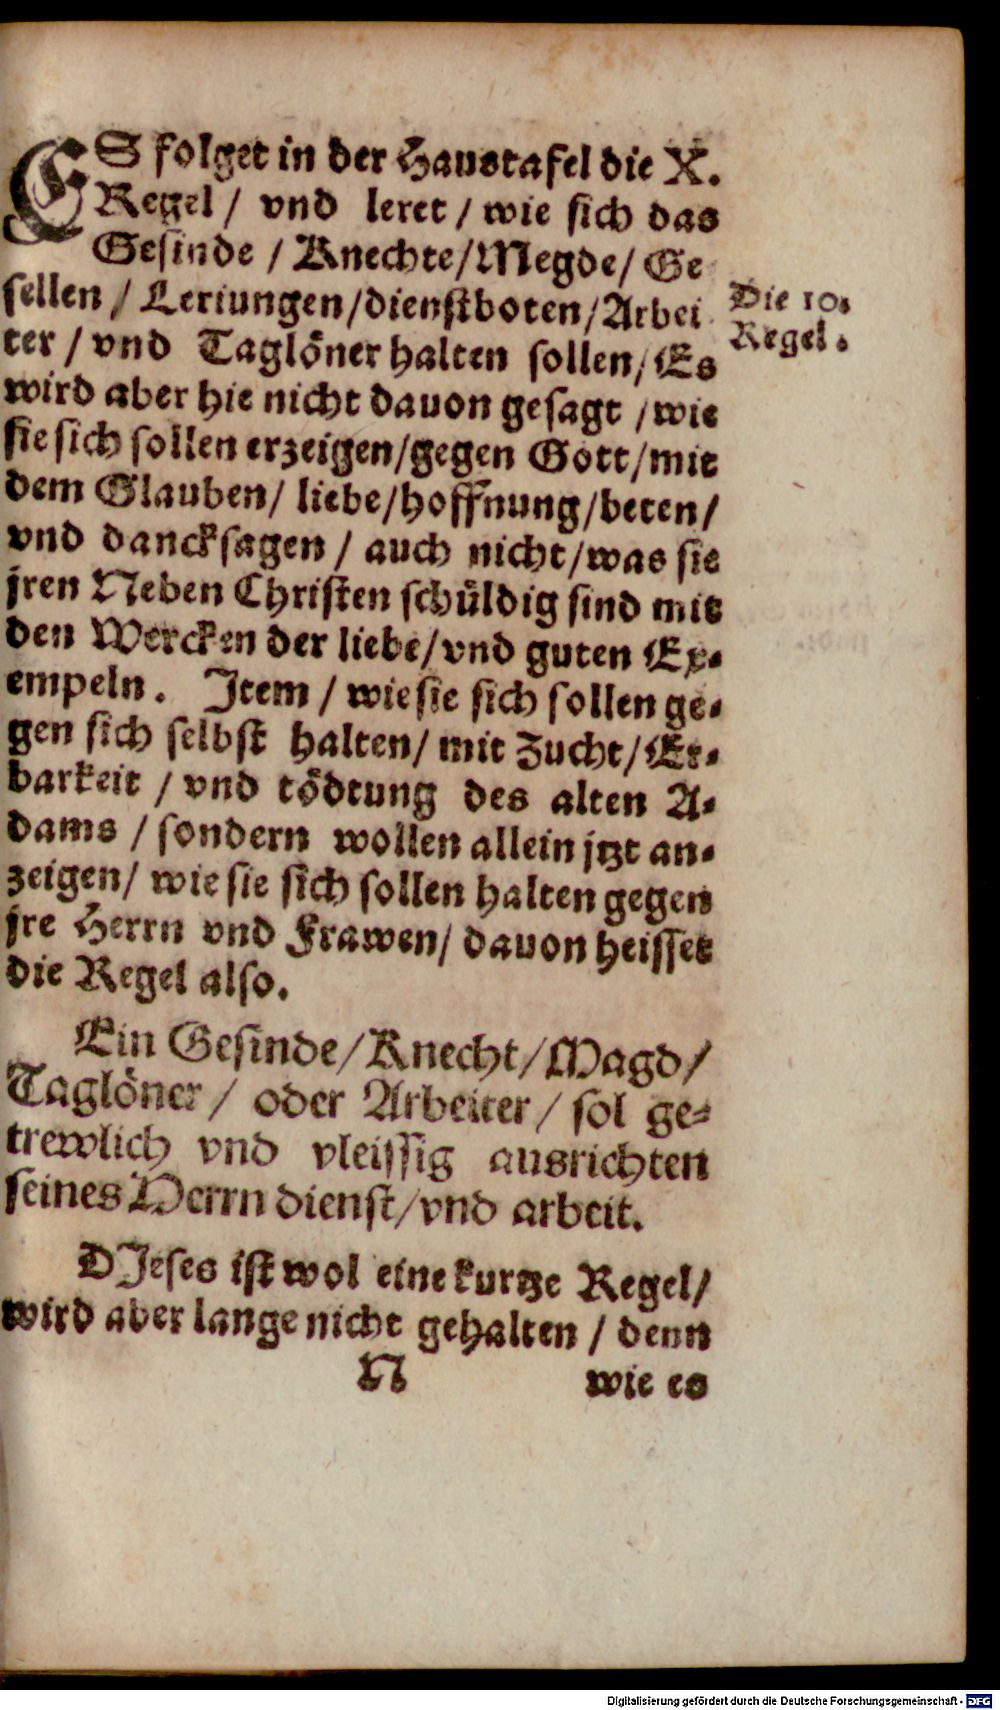 ES folget in der Haustafel die X.
Regel / vnd leret / wie sich das
Gesinde / Knechte/Megde/ Ge
sellen / Leriungen/dienstboten/Arbei
ter / vnd Taglöner halten sollen/ Es
wird aber hie nicht dauon gesagt / wie
sie sich sollen erzeigen/gegen Gott/mit
dem Glauben/ liebe/hoffnung/beten/
vnd dancksagen / auch nicht/was sie
jren Neben Christen schüldig sind mit
den Wercken der liebe/vnd guten Ex-
empeln. Item / wie sie sich sollen ge-
gen sich selbst halten/ mit Zucht/Er-
barkeit / vnd tödtung des alten A-
dams / sondern wollen allein jtzt an-
zeigen/ wie sie sich sollen halten gegen
jre Herrn vnd Frawen/ dauon heisset
die Regel also.
Die 10.
Regel.
Ein Gesinde/Knecht/Magd/
Taglöner / oder Arbeiter/ sol ge-
trewlich vnd vleissig ausrichten
seines Herrn dienst/vnd arbeit.
DJeses ist wol eine kurtze Regel/
wird aber lange nicht gehalten / denn
N wie es
Digitalisierung gefördert durch die Deutsche Forschungsgemeinschaft - DFG